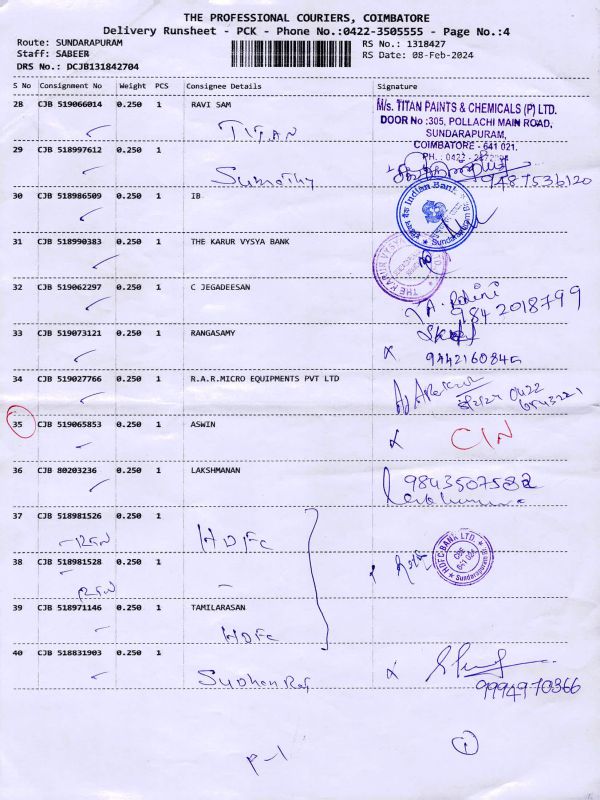 THE PROFESSIONAL COURIERS, COIMBATORE
Delivery Runsheet - PCK - Phone No.:0422-3505555 - Page No.:4
Route: SUNDARAPURAM
Staff: SABEER
DRS No.: DCJB131842704
RS No.: 1318427
RS Date: 08-Feb-2024
S No Consignment No Weight PCS Consignee Details Signature
28 CJB 519066014 0.250 1 RAVI SAM
TITAN
M/s. TITAN PAINTS & CHEMICALS (P) LTD.
DOOR No :305, POLLACHI MAIN ROAD,
SUNDARAPURAM,
COIMBATORE - 641 021.
29 CJB 518997612 0.250 1
Sumathy
9487536120
30 CJB 518986509 0.250 1 IB
Indian Bank
31 CJB 518990383 0.250 1 THE KARUR VYSYA BANK
THE KARUR VYSYA
32 CJB 519062297 0.250 1 C JEGADEESAN
9842018799
33 CJB 519073121 0.250 1 RANGASAMY
34 CJB 519027766 0.250 1 R.A.R.MICRO EQUIPMENTS PVT LTD
0422
35 CJB 519065853 0.250 1 ASWIN
C/N
36 CJB 80203236 0.250 1 LAKSHMANAN
9843507582
37 CJB 518981526 0.250 1
HDFC
38 CJB 518981528 0.250 1
HDFC BANK LTD.
Sundarapuram
39 CJB 518971146 0.250 1 TAMILARASAN
HDFC
40 CJB 518831903 0.250 1
9994970366
P-1
1